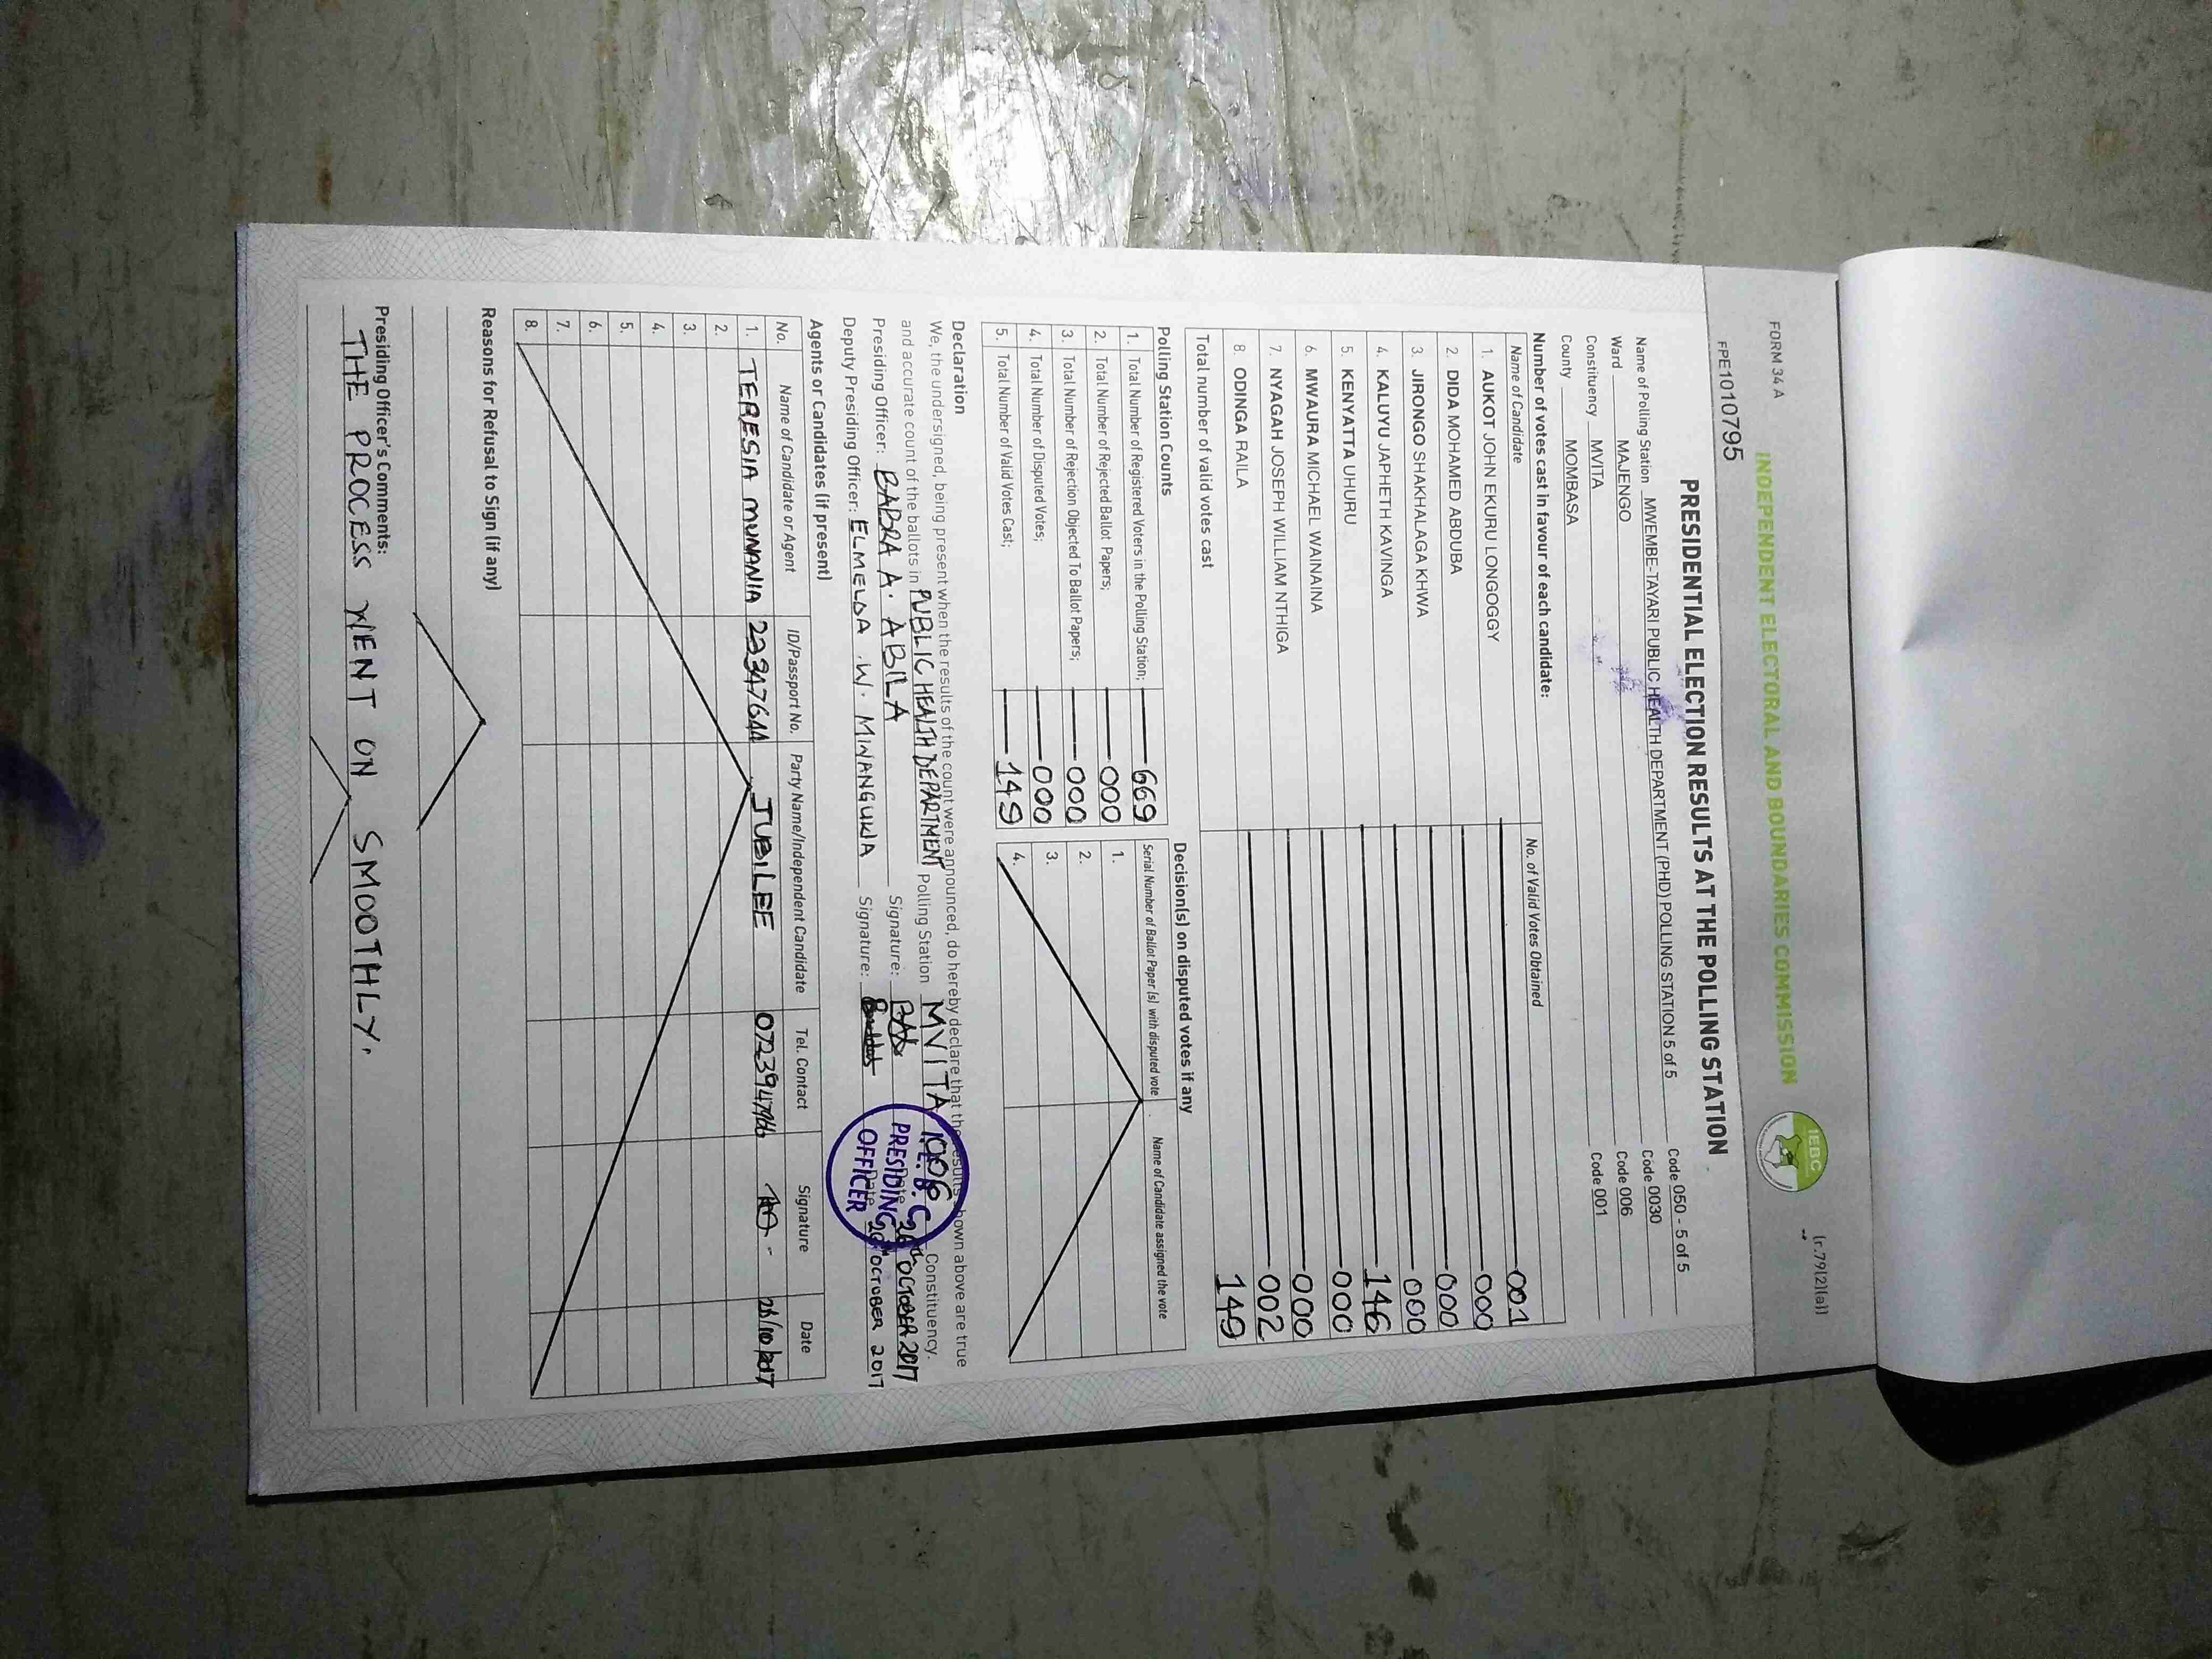 FORM 34 A
(r.79(2)(a))
INDEPENDENT ELECTORAL AND BOUNDARIES COMMISSION
IEBC
FPE1010795
PRESIDENTIAL ELECTION RESULTS AT THE POLLING STATION
Name of Polling Station MWEMBE-TAYARI PUBLIC HEALTH DEPARTMENT (PHD) POLLING STATION 5 of 5 Code 050 - 5 of 5
Ward MAJENGO Code 0030
Constituency MVITA Code 006
County MOMBASA Code 001
Number of votes cast in favour of each candidate:
Name of Candidate No. of Valid Votes Obtained
1. AUKOT JOHN EKURU LONGOGGY 001
2. DIDA MOHAMED ABDUBA 000
3. JIRONGO SHAKHALAGA KHWA 000
4. KALUYU JAPHETH KAVINGA 000
5. KENYATTA UHURU 146
6. MWAURA MICHAEL WAINAINA 000
7. NYAGAH JOSEPH WILLIAM NTHIGA 000
8. ODINGA RAILA 002
Total number of valid votes cast 149
Polling Station Counts
1. Total Number of Registered Voters in the Polling Station; 669
2. Total Number of Rejected Ballot Papers; 000
3. Total Number of Rejection Objected To Ballot Papers; 000
4. Total Number of Disputed Votes; 000
5. Total Number of Valid Votes Cast; 149
Decision(s) on disputed votes if any
Serial Number of Ballot Paper (s) with disputed vote Name of Candidate assigned the vote
1.
2.
3.
4.
Declaration
We, the undersigned, being present when the results of the count were announced, do hereby declare that the results shown above are true
and accurate count of the ballots in PUBLIC HEALTH DEPARTMENT Polling Station MVITA 1006 Constituency.
Presiding Officer: BABRA A. ABILA Signature: Date 26th OCTOBER 2017
Deputy Presiding Officer: ELMELDA .W. MINANGUKIA Signature: Date 26th OCTOBER 2017
I.E.B.C
PRESIDING
OFFICER
Agents or Candidates (if present)
No. Name of Candidate or Agent ID/Passport No. Party Name/Independent Candidate Tel. Contact Signature Date
1. TERESIA MUNANIA JUBILEE 26/10/2017
2.
3.
4.
5.
6.
7.
8.
Reasons for Refusal to Sign (if any)
Presiding Officer's Comments:
THE PROCESS WENT ON SMOOTHLY.